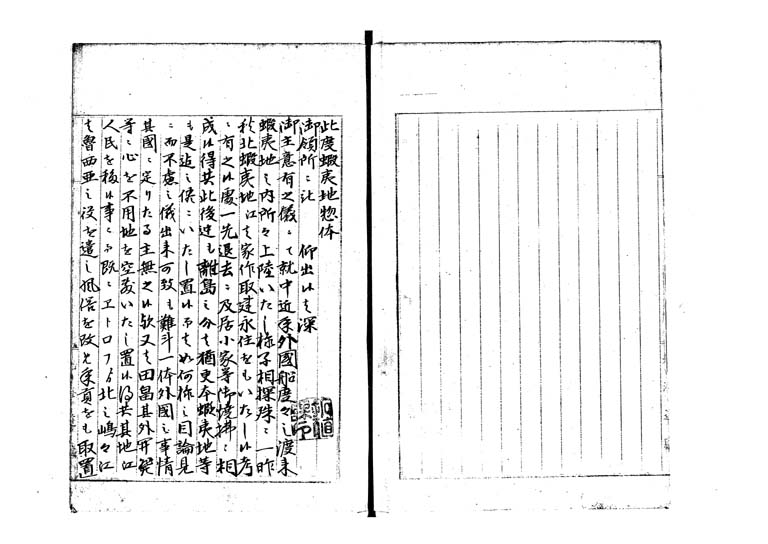 此度蝦夷地惣体
御領所ニ被　仰出候も深
御主意有之儀ニて就中近年外國船度々渡来
蝦夷地之内所々上陸いたし様子相探殊ニ一昨
秋北蝦夷地江も家作取建永住をもいたし候考
ニ有之候處一先退去ニ及居小家等御焼拂ニ相
成候得共此後迚も離島之分も猶更本蝦夷地等
も是迄之侭ニいたし置候而ハ如何様之目論見
ニ而不慮之儀出来可致も難斗一体外國之事情
其國ニ定りたる主無之候歟又も田畠其外開発
等ニ心を不用地を空敷いたし置候得共其地江
人民を移候事ニ而既ニヱトロフゟ北之嶋々江
も魯西亜之役を遣し風俗を改め年貢をも取置